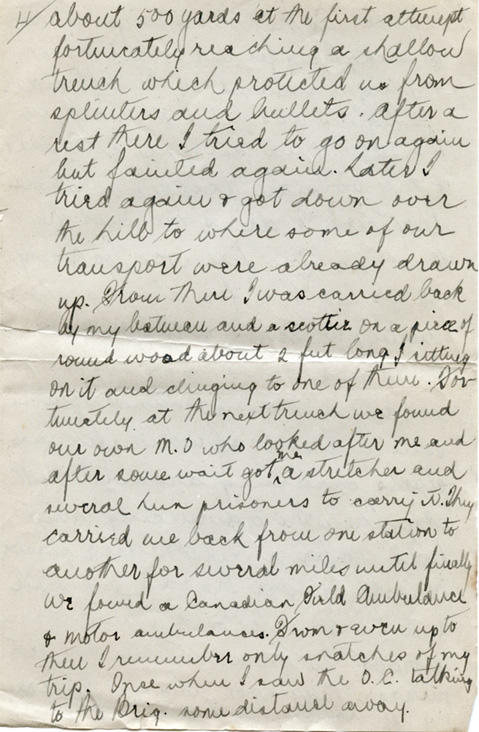 4/ about 500 yards at the first attempt
fortunately reaching a shallow
trench which protected us from
splinters and bullets. After a
rest there I tried to go on again
but fainted again. Later I
tried again & got down over
the hill to where some of our
transport were already drawn
up. From there I was carried back
by my batman and a scottie on a piece of
round wood about 2 feet long I sitting
on it and clinging to one of them. For-
tunately at the next trench we found
our own M.O who looked after me and
after some wait got me a stretcher and
several hun prisoners to carry it. They
carried me back from one station to
another for several miles until finally
we found a Canadian Field Ambulance
& motor ambulances. From & even up to
there I remember only snatches of my
trip. Once when I saw the O.C. talking
to the Brig. some distance away.